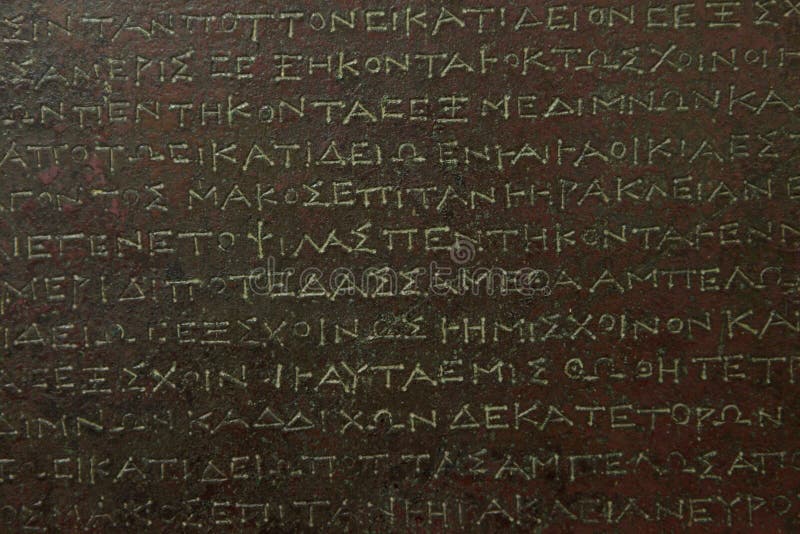 ΣΙΝΤΑΝΠΟΤΤΟΝϜΙΚΑΤΙΔΕΙΟΝϜΕΞΣΧ
ΣΑΜΕΡΙΣϜΕΞΗΚΟΝΤΑͰΟΚΤΩΣΧΟΙΝΟΙΗ
ΩΝΠΕΝΤΗΚΟΝΤΑϜΕΞΜΕΔΙΜΝΩΝΚΑ
ΑΠΟΤΩϜΙΚΑΤΙΔΕΙΩΕΝͰΑΙͰΑΟΙΚΙΑΕΣ
ΑΓΟΝΤΩΣΜΑΚΟΣΕΠΙΤΑΝΗΗΡΑΚΛΕΙΑΝΕ
ΙΕΓΕΝΕΤΟΨΙΛΑΣΠΕΝΤΗΚΟΝΤΑͰΕΝΝ
ΜΕΡΙΔΙΠΟΤΕΔΑΣΣΩΜΕΘΑΑΜΠΕΛΩ
ΙΔΕΙΩϜΕΞΣΧΟΙΝΩΣͰΗΜΙΣΧΟΙΝΟΝΚΑ
ϜΕΞΣΧΟΙΝΙͰΑΥΤΑΕΜΙΣΘΩΘΗΤΕΤΡ
ΔΙΜΝΩΝΚΑΔΔΙΧΩΝΔΕΚΑΤΕΤΟΡΩΝ
ΤΩϜΙΚΑΤΙΔΕΙΩΠΟΤΤΑΣΑΜΠΕΛΩΣΑΠΟ
ΟΣΜΑΚΟΣΕΠΙΤΑΝͰΗΡΑΚΛΕΙΑΝΕΥΡΟΣ
dreamstime